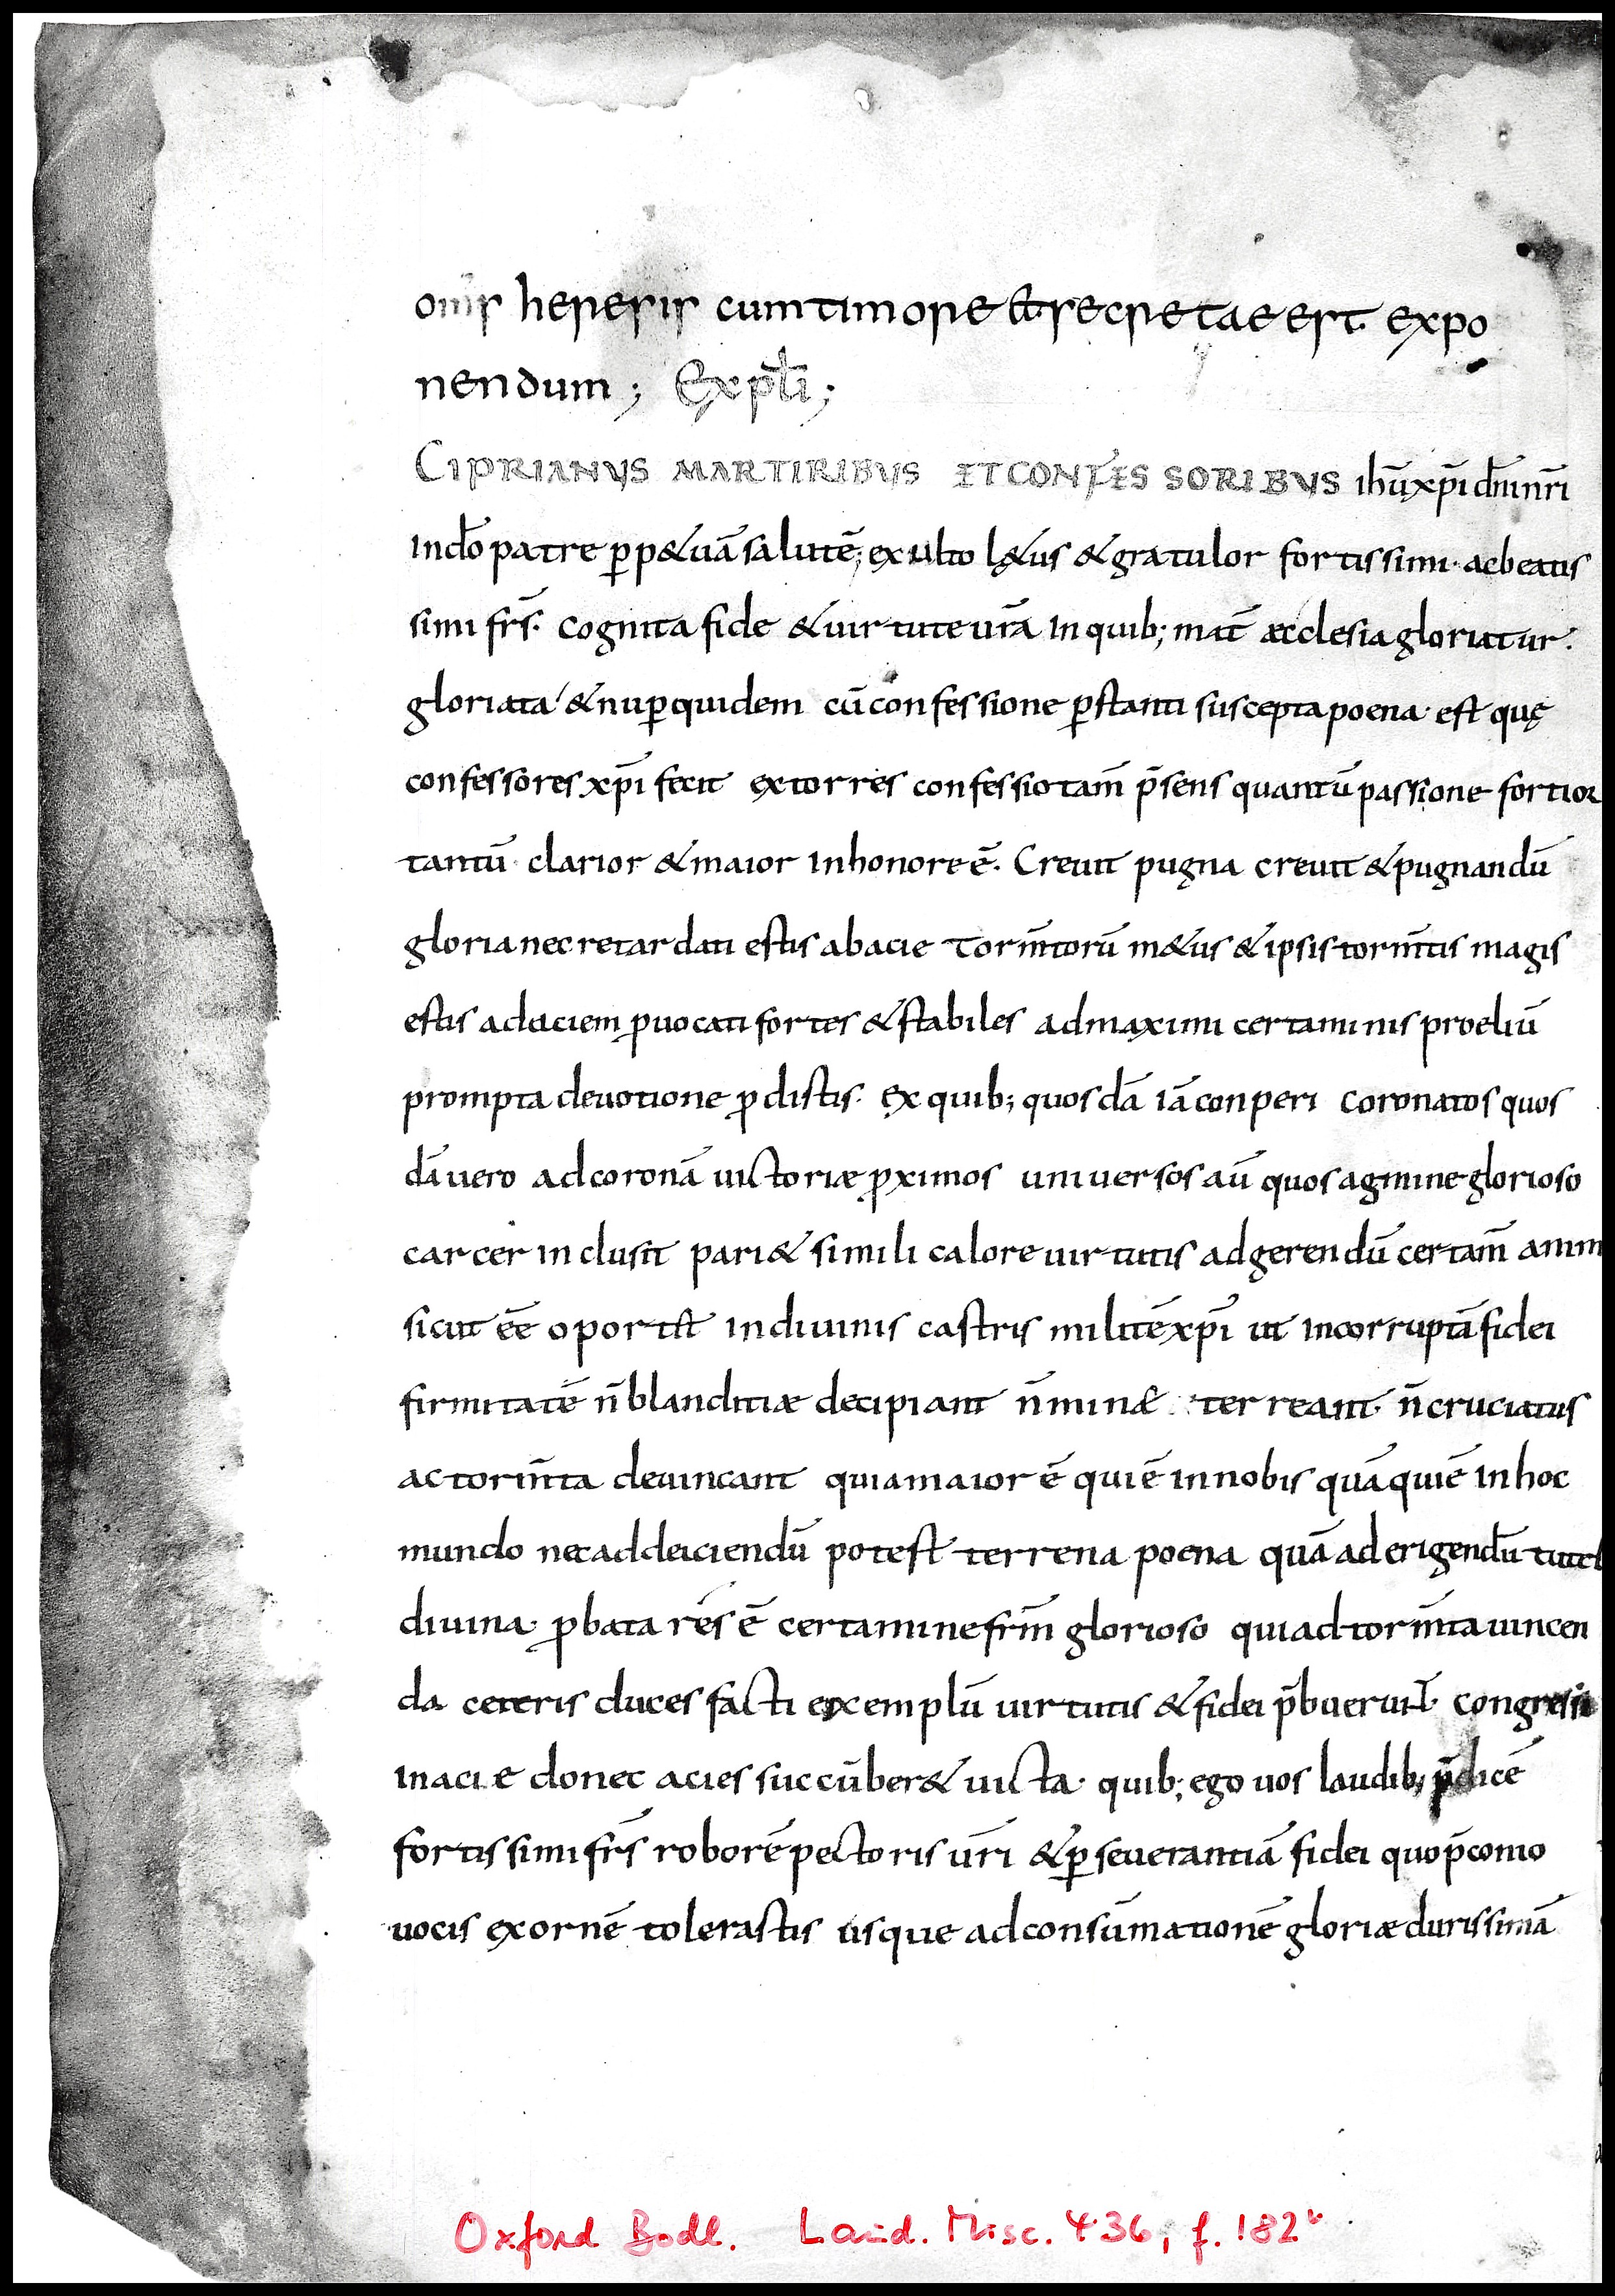 om̄is heresis cum timore & secretae est expo
nendum; Expl̄i;
CIPRIANUS MARTIRIBUS ET CONFESSORIBUS ihū xp̄i dn̄i nr̄i
In do͞ patre ꝑp&uā salutē; exulto l&us & gratulor fortissimi ac beatis
simi fr̄s. cognita fide & uirtute ur̄a In quib; mat̄ æcclesia gloriatur.
gloriata & nuꝑ quidem cū confessione ꝑstanti suscepta poena est quę
confessores xp̄i fecit extorres confessio tam̄ p̄sens quantū passione fortior
tantū clarior & maior In honore ē. Creuit pugna creuit & pugnandū
gloria nec retardati estis ab acie torm̄torū m&us & ipsis torm̄tis magis
estis ad aciem ꝓuocati fortes & stabiles ad maximi certaminis proeliū
prompta deuotione ꝓdistis. ex quib; quosdā iā conperi coronatos quos
dā uero ad coronā uictoriæ ꝓximos uniuersos aū quos agmine glorioso
carcer inclusit pari & simili calore uirtutis ad gerendū certam̄ anim
sicut ēē oport& In diuinis castris militē xp̄i ut incorruptā fidei
firmitatē n̄ blanditiæ decipiant n̄ minæ terreant n̄ cruciatus
ac torm̄ta deuincant quia maior ē qui ē in nobis quā qui ē In hoc
mundo nec ad deiciendū potest terrena poena quā ad erigendū tutel
diuina. ꝓbata res ē certamine frm̄ glorioso qui ad torm̄ta uincen
da ceteris duces facti exemplū uirtutis & fidei p̄buerunt. congressi
In acie donec acies succūber& uicta. quib; ego uos laudib; p̄dicē
fortissimi fr̄s roborē pectoris ur̄i & ꝑseuerantiā fidei quo p̄conio
uocis exornē tolerastis usque ad consūmationē gloriæ durissimā
Oxford Bodl. Laud. Misc. 436, f. 182ᵛ